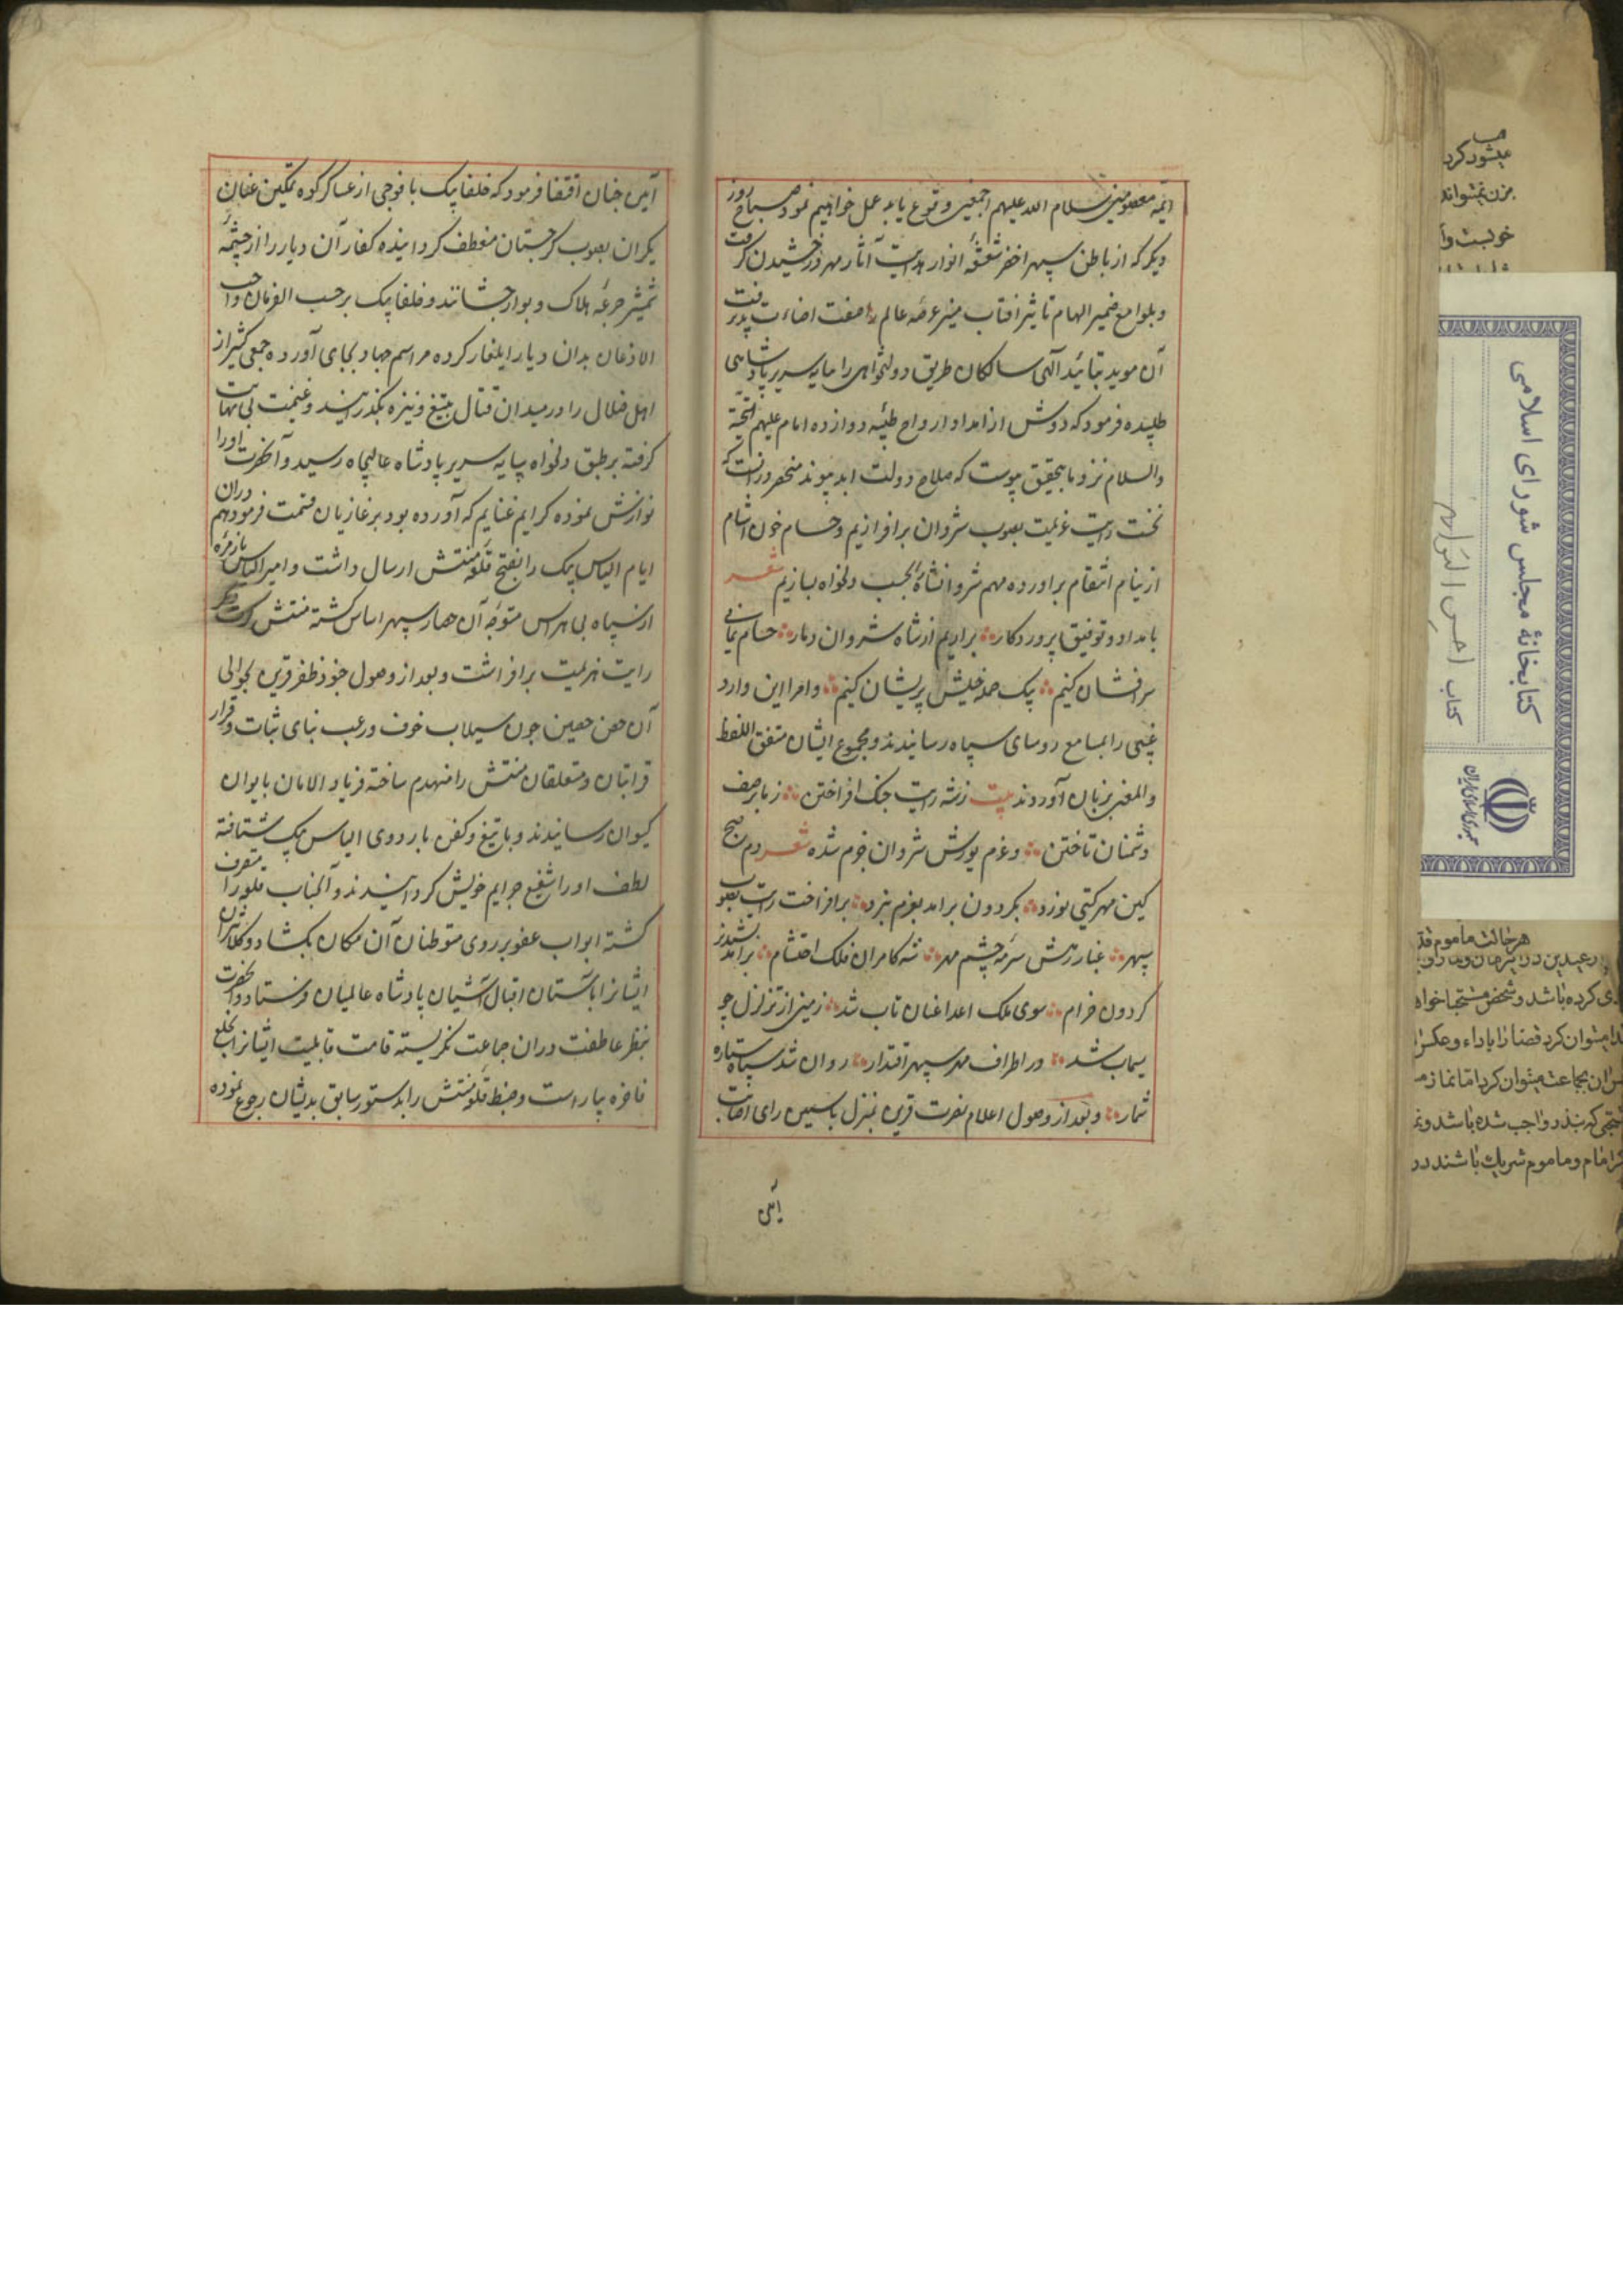 ائمه معصومین سلام الله علیهم اجمعین وقوع یابد عمل خواهیم نمود صباح روز
دیگر که از باطن سپهر اخضر شعشعهٔ انوار هدایت آثار مهر درخشیدن گرفت
وبلوامع ضمیر الهام تاثیر افتاب منیر عرصهٔ عالم صفت اضاءت پذیرفت
آن موید بتائید آلهی سالکان طریق دولتخواهی را بپایه سریر پادشاهی
طلبیده فرمود که دوش از امداد ارواح طیبه دوازده امام علیهم التحیة
والسلام نزد ما بتحقیق پیوست که صلاح دولت ابد پیوند منحصر در انست که
نخست رایت عزیمت بصوب شروان برافرازیم وحسام خون اشام
از نیام انتقام براورده مهم شروانشاه را بحسب دلخواه بسازیم شعر
بامداد وتوفیق پروردکار براریم از شاه شروان دمار حسام یمانی
سرافشان کنیم بیک حمله خیلش پریشان کنیم وامرا این وارد
غیبی را بمسامع روسای سپاه رسانیدند ومجموع ایشان متفق اللفظ
والمعنی بزبان آوردند بیت زشه رایت جنک افراختن زما بر صف
دشمنان تاختن وعزم یورش شروان جزم شده شعر دم صبح
کین مهر کیتی نورد بکردون برامد بعزم نبرد برافراخت رایت بصوب
سپهر غبار رهش سرمهٔ چشم مهر شه کامران فلک احتشام برامد بشبدیز
کردون خرام سوی ملک اعدا عنان تاب شد زمین از تزلزل چو
سیماب شد در اطراف مهر سپهر اقتدار روان شد سپاه ستاره
شمار وبعد از وصول اعلام نصرت قرین بمنزل یاسین رای اصابت
آئین
آئین چنان اقتضا فرمود که خلفا بیک با فوجی از عساکر کوه تمکین عنان
یکران بصوب کرجستان منعطف کردانیده کفار آن دیار را از چشمهٔ
شمشیر جرعهٔ هلاک وبوار چشانند وخلفا بیک برحسب الفرمان واجب
الاذعان بدان دیار ایلغار کرده مراسم جهاد بجای آورده جمعی کثیر از
اهل ضلال را در میدان قتال بتیغ ونیزه بکذرانید وغنیمت بی نهایت
کرفته برطبق دلخواه بپایه سریر پادشاه عالیجاه رسید وآنحضرت اورا
نوازش نموده کرایم غنایم که آورده بود بر غازیان قسمت فرمود وهم دران
ایام الیاس بیک را بفتح قلعهٔ منتش ارسال داشت وامیر الیاس با زمره
از سپاه بی هراس متوجه آن حصار سپهر اساس کشته منتش
رایت هزیمت برافراشت وبعد از وصول جنود ظفر قرین بحوالی
آن حصن حصین چون سیلاب خوف ورعب بنای ثبات وقرار
قرابتان ومتعلقان منتش را منهدم ساخته فریاد الامان بایوان
کیوان رسانیدند وبا تیغ وکفن باردوی الیاس بیک شتافته
لطف اورا شفیع جرایم خویش کردانیدند وآنجناب قلعه را متصرف
کشته ابواب عفو بر روی متوطنان آن مکان بکشاد وکلانتران
ایشانرا باستان اقبال آشیان پادشاه عالمیان فرستاد وآنحضرت
بنظر عاطفت دران جماعت نکریسته قامت قابلیت ایشانرا بخلع
فاخره بیاراست وضبط قلعهٔ منتش را بدستور سابق بدیشان رجوع نموده
کتابخانهٔ مجلس شورای اسلامی
کتاب احسن التواریخ
جمهوری اسلامی ایران
میشود کرد
هر حالت ماموم
کرده باشد وشخص
میتوان کرد قضا را باداء وعکس
بجماعت میتوان کرد اما نماز
که بنذر واجب شده باشد
امام وماموم شریک باشند در